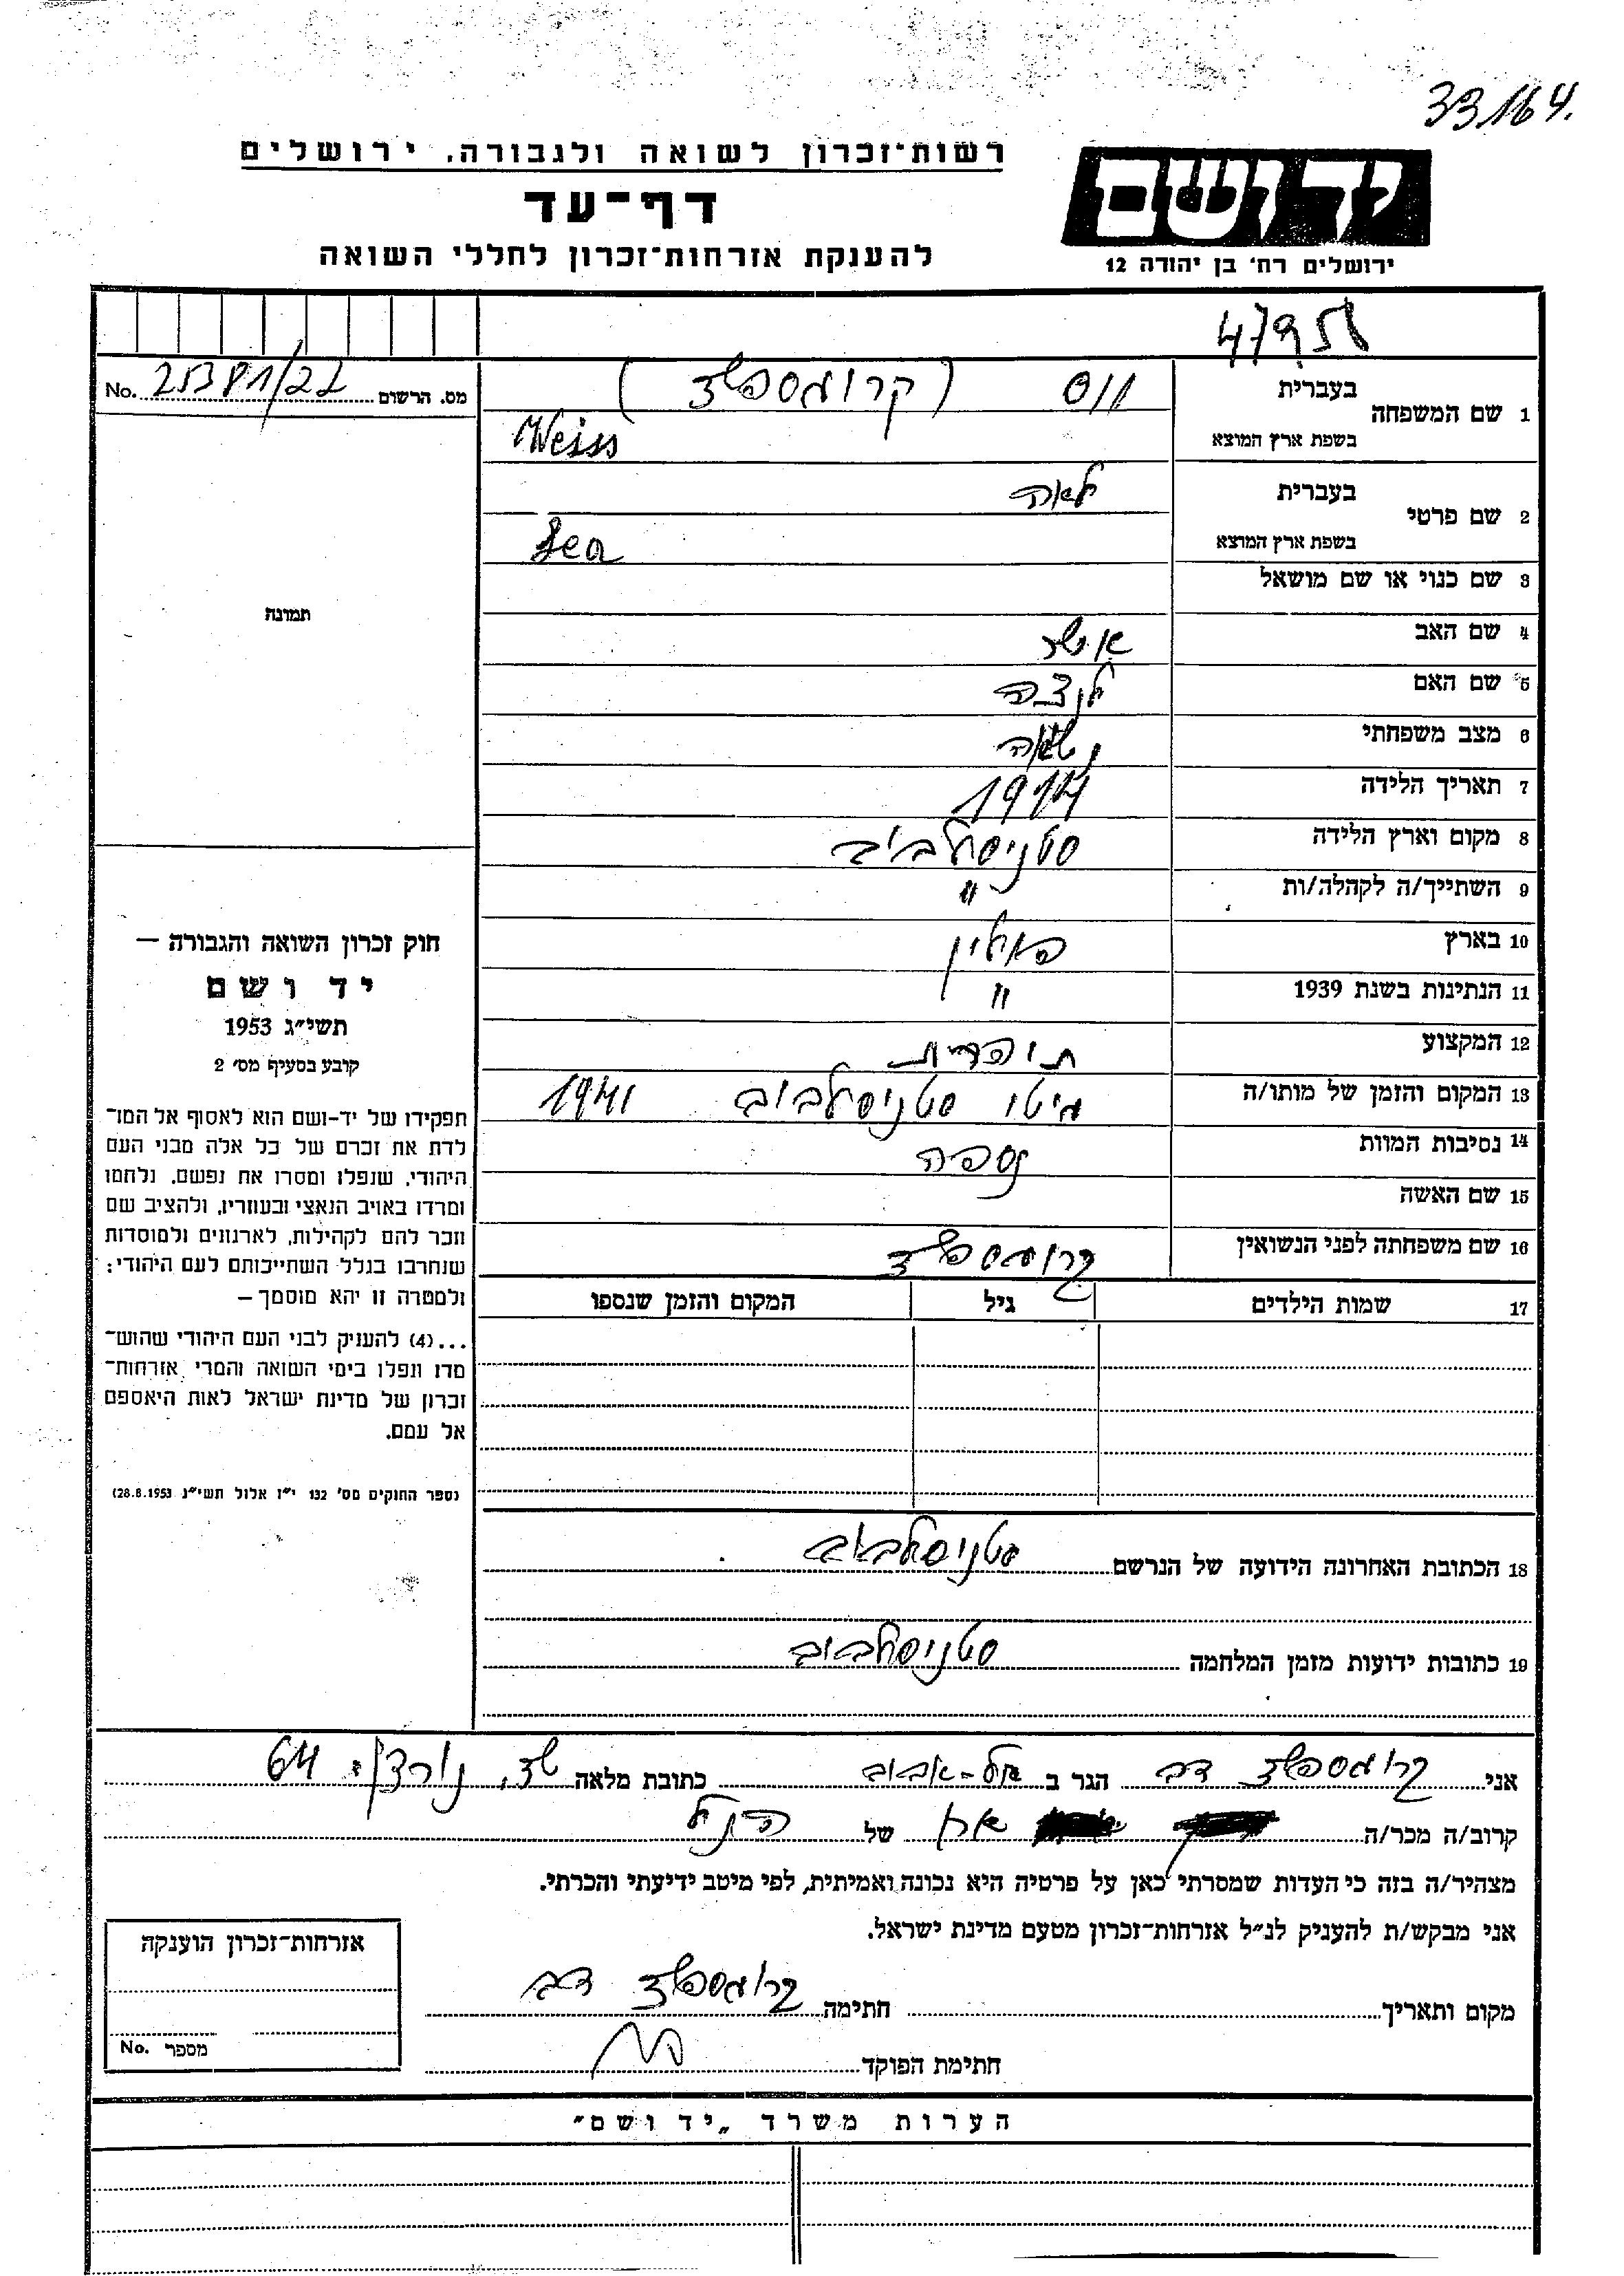 33164.
רשות־זכרון לשואה ולגבורה, ירושלים
דף־עד
להענקת אזרחות־זכרון לחללי השואה
יד ושם
ירושלים רח׳ בן יהודה 12
מס. הרשום No.
1 שם המשפחה
בעברית
בשפת ארץ המוצא Weiss
2 שם פרטי
בעברית לאה
בשפת ארץ המוצא Lea
3 שם כנוי או שם מושאל
4 שם האב
5 שם האם
6 מצב משפחתי נשואה
7 תאריך הלידה 1914
8 מקום וארץ הלידה סטניסלבוב
9 השתייך/ה לקהלה/ות "
10 בארץ פולין
11 הנתינות בשנת 1939 "
12 המקצוע תופרת
13 המקום והזמן של מותו/ה גיטו סטניסלבוב 1941
14 נסיבות המוות נספה
15 שם האשה
16 שם משפחתה לפני הנשואין
17 שמות הילדים גיל המקום והזמן שנספו
18 הכתובת האחרונה הידועה של הנרשם סטניסלבוב
19 כתובות ידועות מזמן המלחמה סטניסלבוב
תמונה
חוק זכרון השואה והגבורה —
יד ושם
תשי״ג 1953
קובע בסעיף מס׳ 2
תפקידו של יד־ושם הוא לאסוף אל המו־
לדת את זכרם של כל אלה מבני העם
היהודי, שנפלו ומסרו את נפשם, נלחמו
ומרדו באויב הנאצי ובעוזריו, ולהציב שם
וזכר להם לקהילות, לארגונים ולמוסדות
שנחרבו בגלל השתייכותם לעם היהודי:
ולמטרה זו יהא מוסמך —
...(4) להעניק לבני העם היהודי שהוש־
מדו ונפלו בימי השואה והמרי אזרחות־
זכרון של מדינת ישראל לאות היאספם
אל עמם.
(ספר החוקים מס׳ 132 י״ז אלול תשי״ג 28.8.1953)
אני דב הגר ב תל-אביב כתובת מלאה 64
קרוב/ה מכר/ה אח של הנ״ל
מצהיר/ה בזה כי העדות שמסרתי כאן על פרטיה היא נכונה ואמיתית, לפי מיטב ידיעתי והכרתי.
אני מבקש/ת להעניק לנ״ל אזרחות־זכרון מטעם מדינת ישראל.
מקום ותאריך חתימה דב
חתימת הפוקד
אזרחות־זכרון הוענקה
מספר No.
הערות משרד „יד ושם״